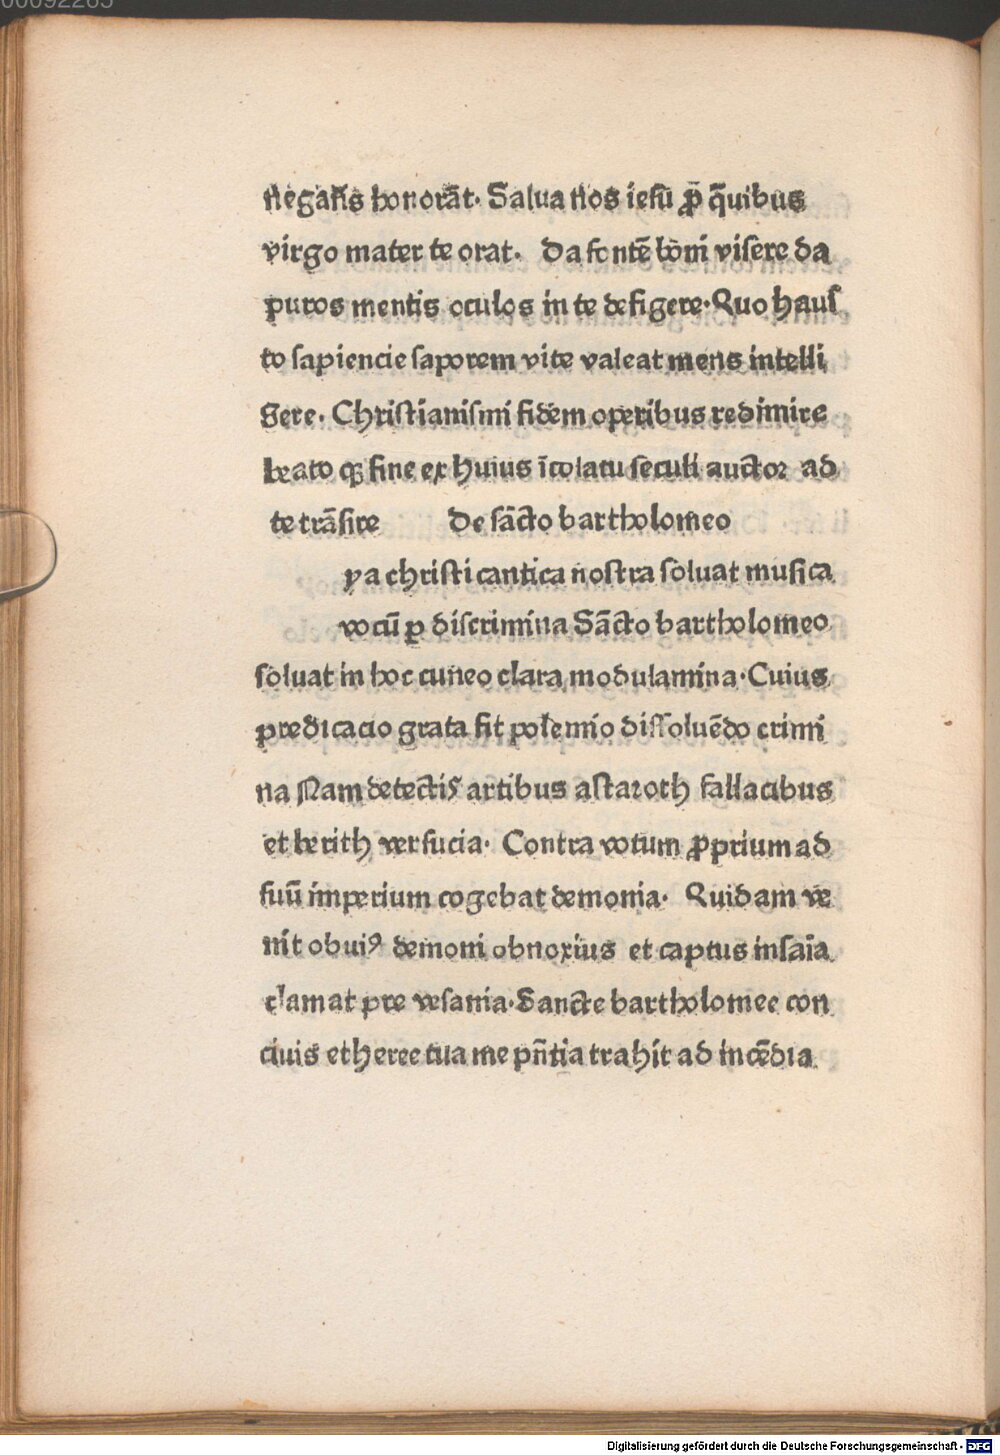 00092265
Negans̄ honorāt· Salua nos iesu ꝓ q̄uibus
virgo mater te orat· Da fontē boni visere da
puros mentis oculos in te defigere· Quo hauſ
to ſapiencie ſaporem vite valeat mens intelli
gere· Chriſtianiſmi fidem operibus redimire
beato qꝫ fine ex huius īcolatu ſeculi auctor ad
te trāſire De ſācto bartholomeo
ya chriſti cantica noſtra ſoluat muſica
vocū ꝑ diſcrimina Sācto bartholomeo
ſoluat in hoc cuneo clara modulamina· Cuius
predicacio grata fit polemio diſſoluēdo crimi
na Nam detectis artibus aſtaroth fallacibus
et berith verſucia· Contra votum ꝓprium ad
ſuū imperium cogebat demonia· Quidam ve
nit obuiꝰ demoni obnoxius et captus inſaīa
clamat pre veſania· Sancte bartholomee con
ciuis etheree tua me pn̄tia trahit ad incēdia
Digitalisierung gefördert durch die Deutsche Forschungsgemeinschaft - DFG